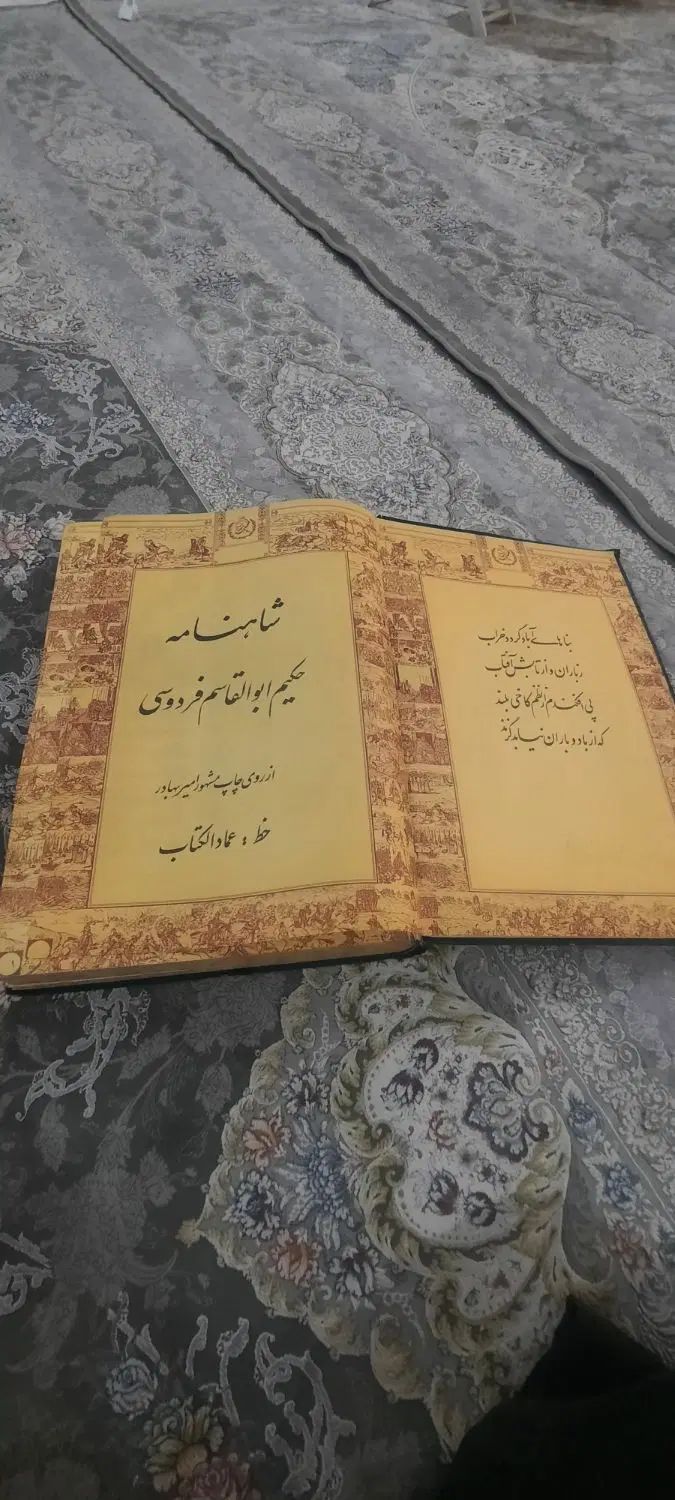 بناهای آباد گردد خراب
ز باران و از تابش آفتاب
پی افکندم از نظم کاخی بلند
که از باد و باران نیابد گزند
شاهنامه
حکیم ابوالقاسم فردوسی
از روی چاپ مشهور امیر بهادر
خط : عمادالکتاب